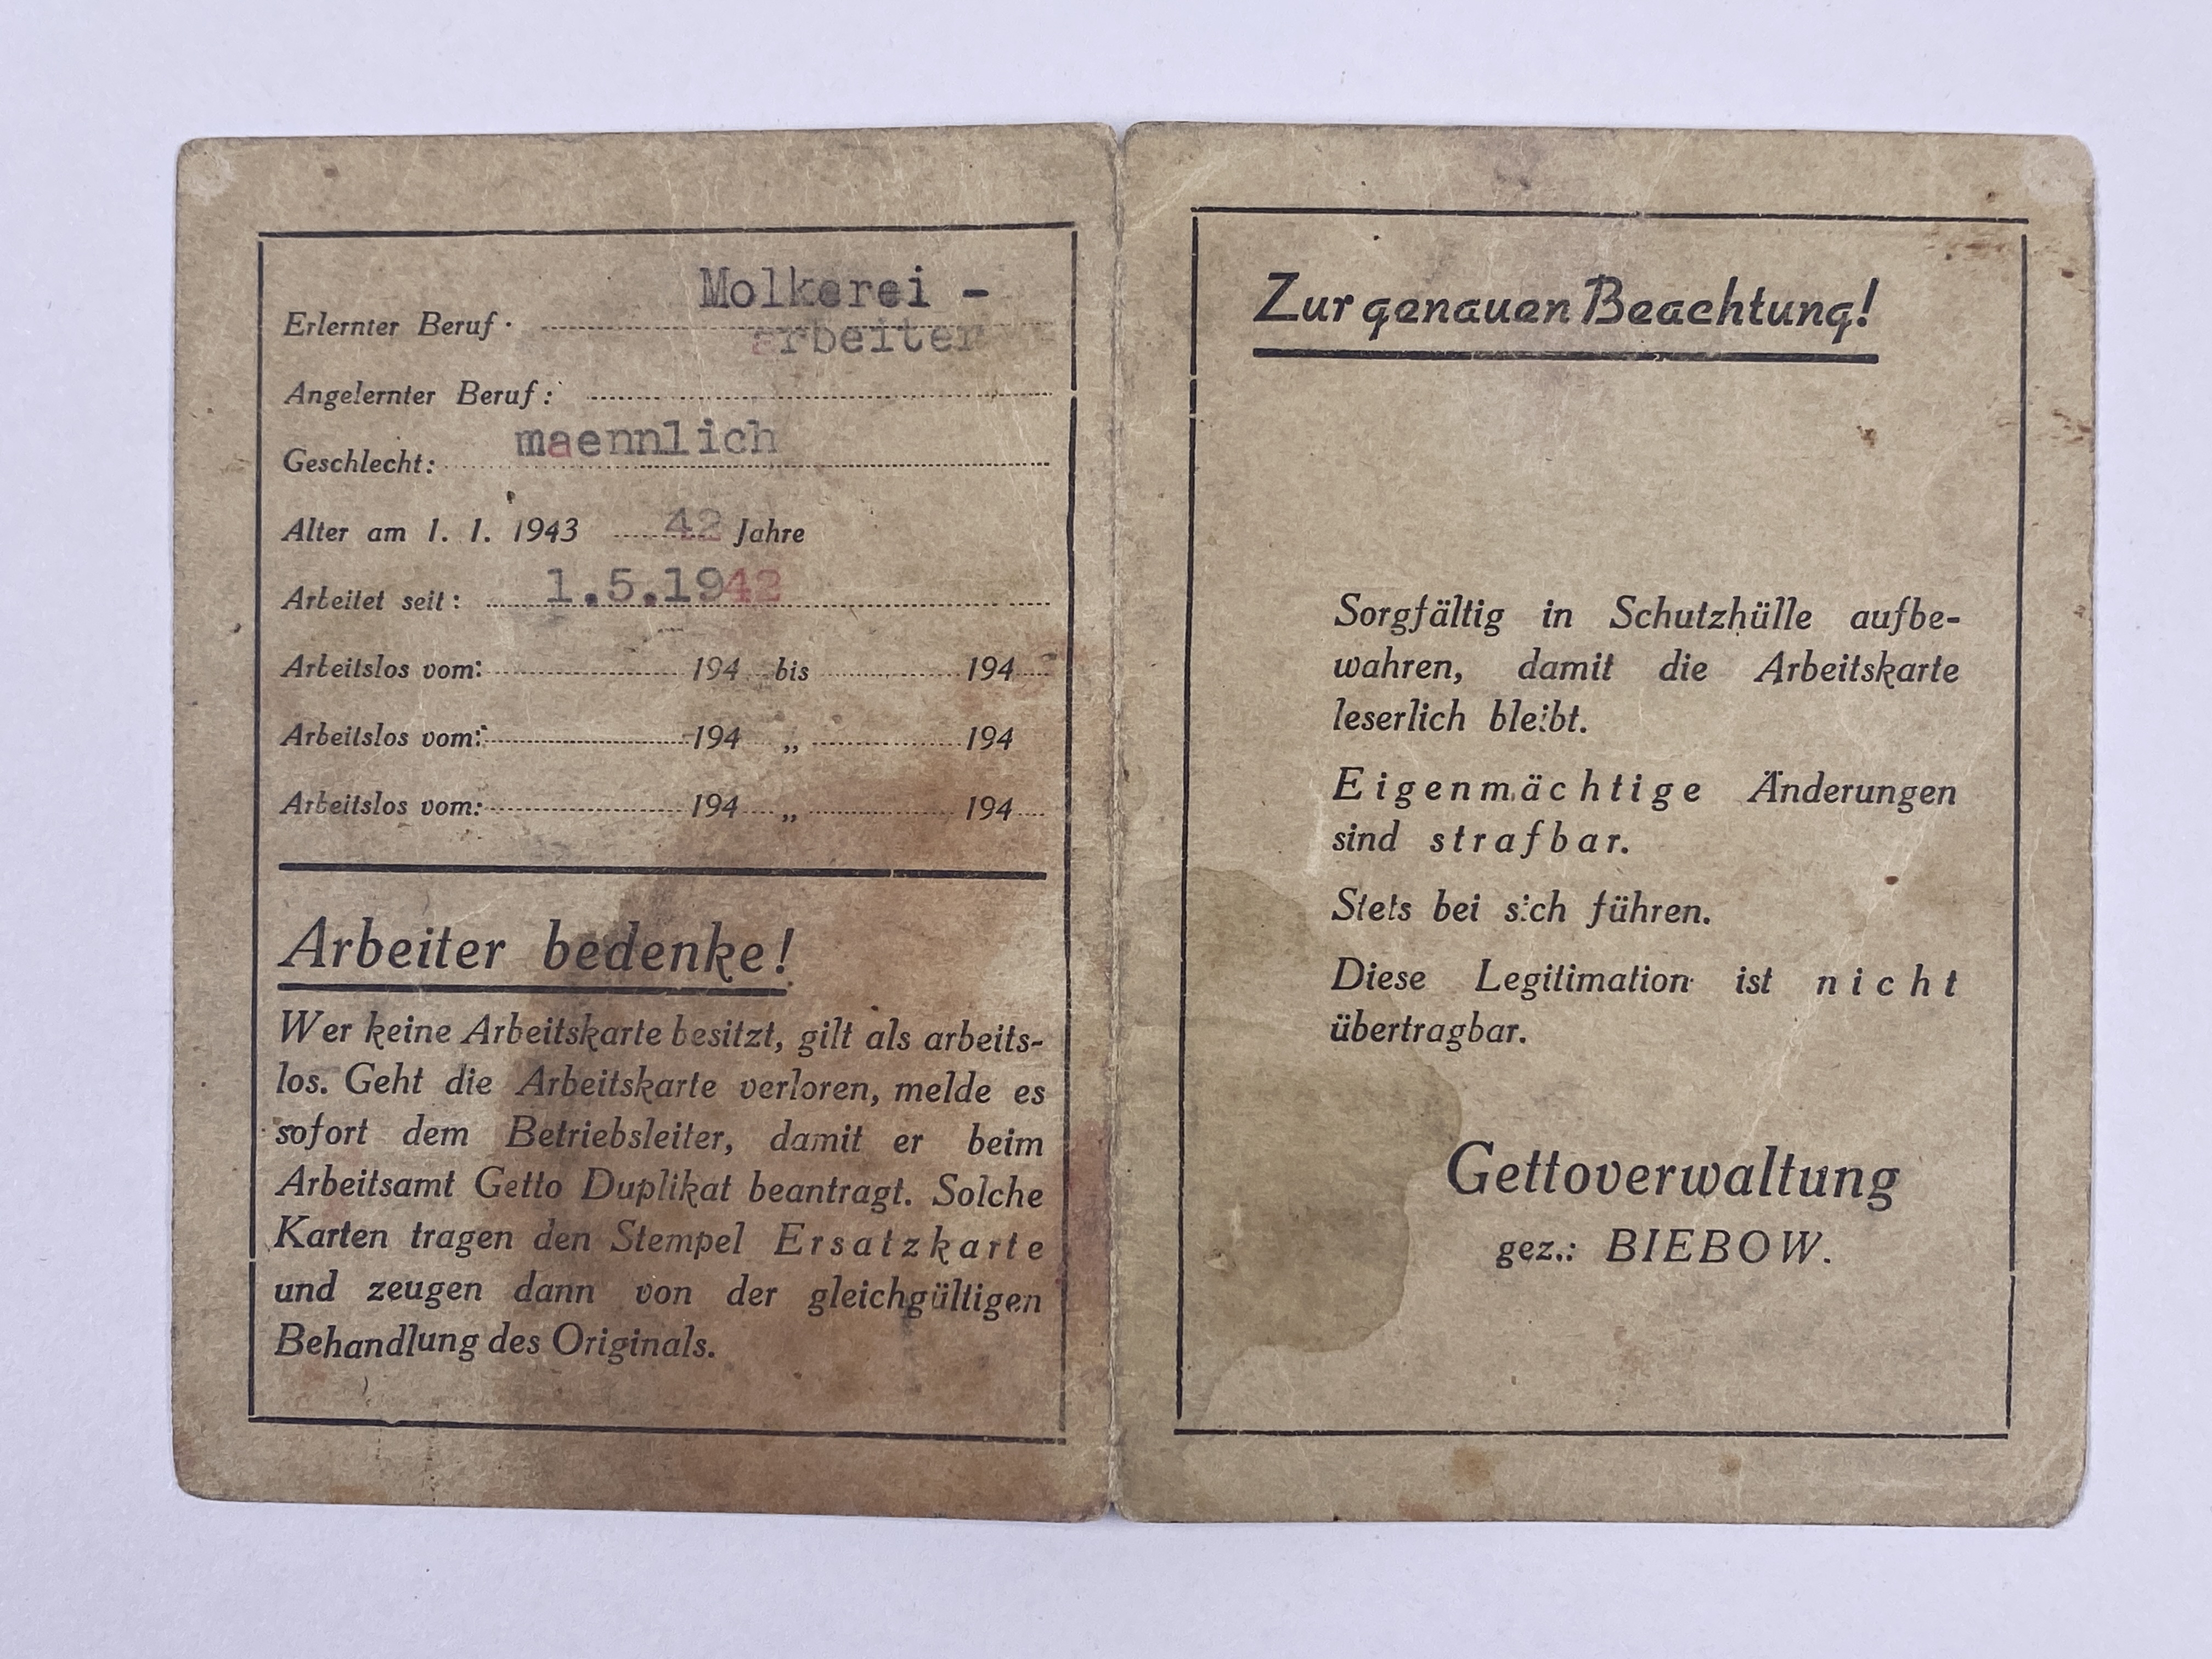 Molkerei -
Erlernter Beruf· arbeiter
Angelernter Beruf:
Geschlecht: maennlich
Alter am 1. 1. 1943 42 Jahre
Arbeitet seit: 1.5.1942
Arbeitslos vom: 194 bis 194
Arbeitslos vom: 194 „ 194
Arbeitslos vom: 194 „ 194
Arbeiter bedenke!
Wer keine Arbeitskarte besitzt, gilt als arbeits-
los. Geht die Arbeitskarte verloren, melde es
sofort dem Betriebsleiter, damit er beim
Arbeitsamt Getto Duplikat beantragt. Solche
Karten tragen den Stempel Ersatzkarte
und zeugen dann von der gleichgültigen
Behandlung des Originals.
Zur genauen Beachtung!
Sorgfältig in Schutzhülle aufbe-
wahren, damit die Arbeitskarte
leserlich bleibt.
Eigenmächtige Änderungen
sind strafbar.
Stets bei sich führen.
Diese Legitimation ist nicht
übertragbar.
Gettoverwaltung
gez.: BIEBOW.